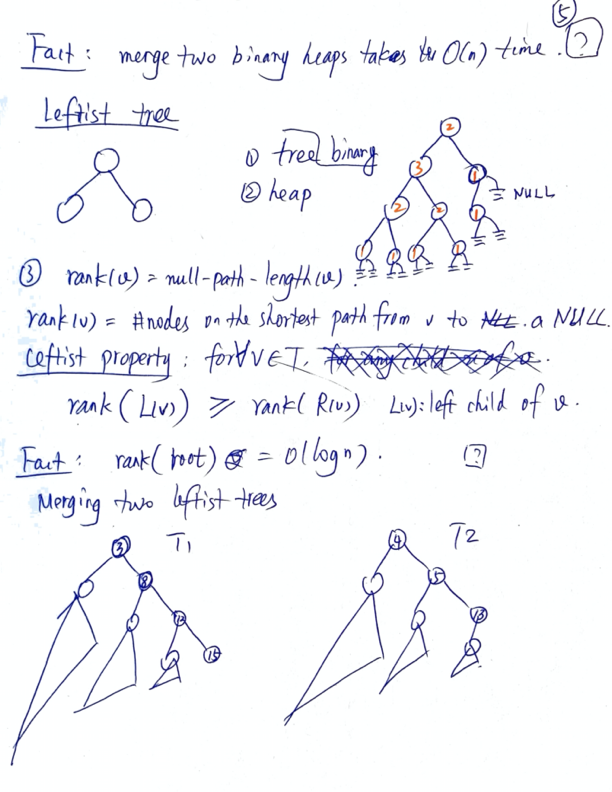 ⑤
Fact: merge two binary heaps takes O(n) time. ?
Leftist tree
① tree binary
② heap
2
3 1
NULL
2 2 1
1 1 1 1
③ rank(v) = null-path-length(v).
rank(v) = #nodes on the shortest path from v to a NULL.
Leftist property: for ∀v∈T,
rank(L(v)) ≥ rank(R(v)) L(v): left child of v.
Fact: rank(root) = O(log n). ?
Merging two leftist trees
T1 T2
3 4
8 5
12 13
15